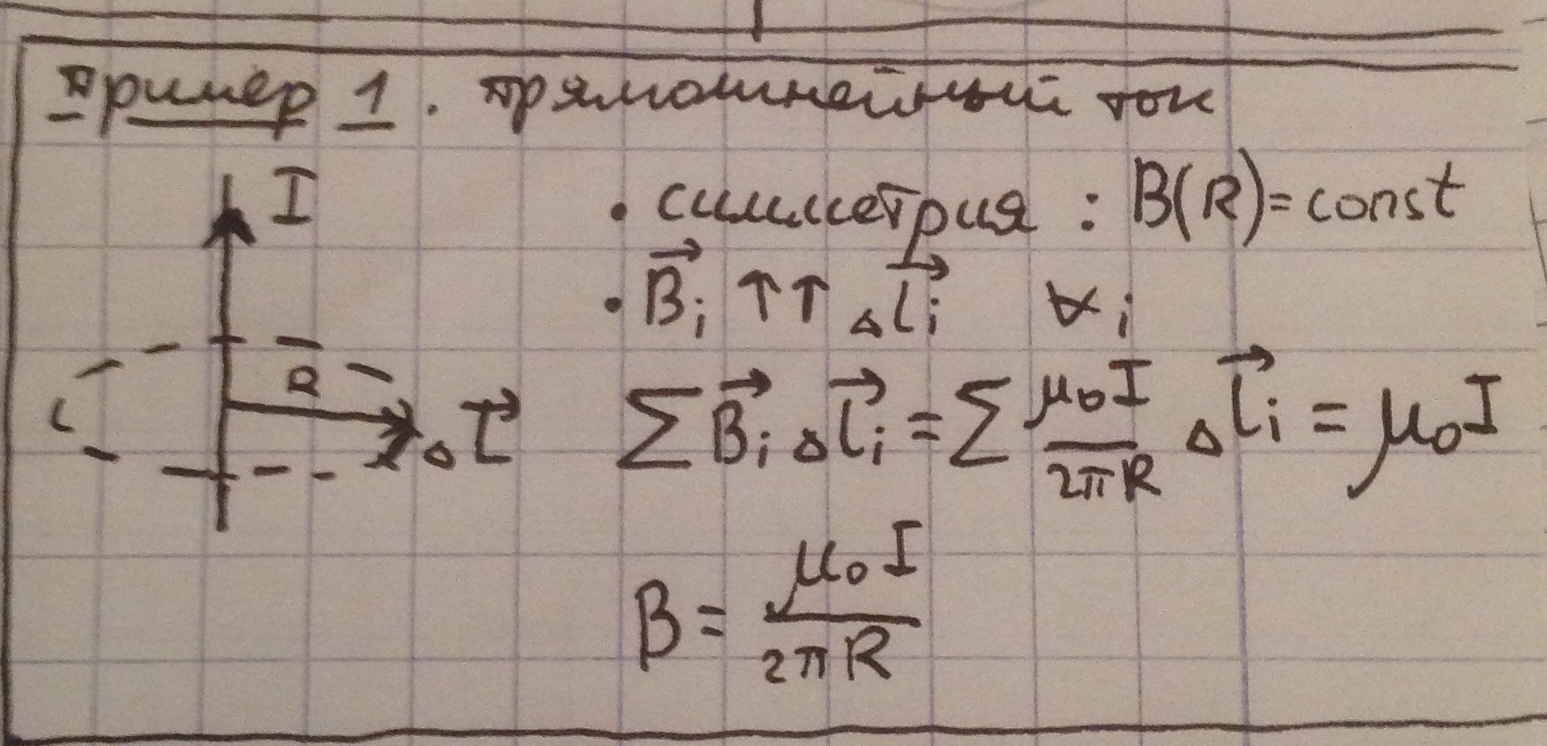 Пример 1. прямолинейный ток
I
• симметрия : B(R)=const
• B⃗ᵢ ↑↑ Δl⃗ᵢ ∀ᵢ
R
Δl⃗
∑ B⃗ᵢ Δl⃗ᵢ = ∑ μ₀I/2πR Δl⃗ᵢ = μ₀I
B = μ₀I/2πR